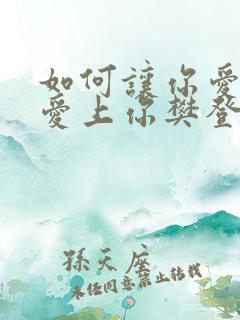 如何讓你愛
愛上你樊登
孫天座
未经同意禁止转载